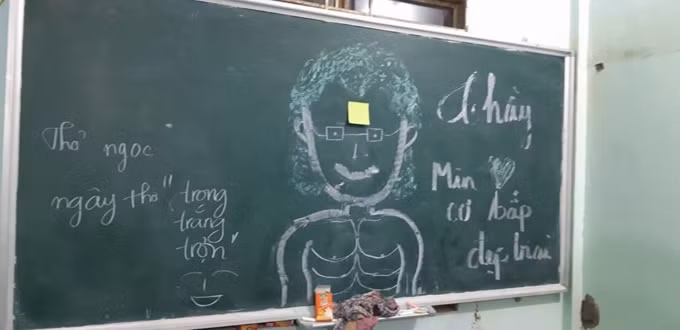 Thỏ ngọc
ngây thơ "trong
trắng
trọn"
Thầy
Min
cơ bắp
đẹp trai